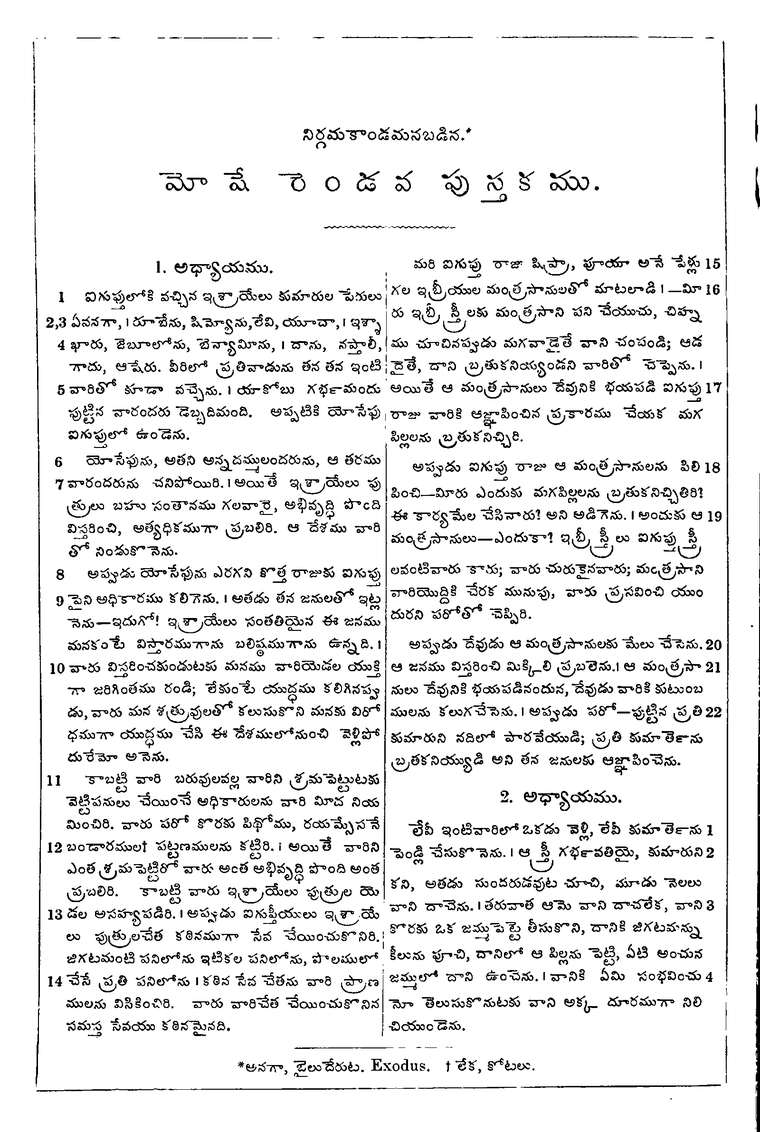 నిర్గమకాండమనబడిన.*
మోషే రెండవ పుస్తకము.
1. అధ్యాయము.
1 ఐగుప్తులోకి వచ్చిన ఇశ్రాయేలు కుమారుల పేరులు
2,3 ఏవనగా, । రూబేను, షిమ్యోను, లేవి, యూదా, । ఇశ్శా
4 ఖారు, జెబూలోను, బెన్యామీను, । దాను, నఫ్తాలీ,
గాదు, ఆషేరు. వీరిలో ప్రతివాడును తన తన ఇంటి
5 వారితో కూడా వచ్చెను. । యాకోబు గర్భమందు
పుట్టిన వారందరు డెబ్బదిమంది. అప్పటికి యోసేఫు
ఐగుప్తులో ఉండెను.
6 యోసేఫును, అతని అన్నదమ్ములందరును, ఆ తరము
7 వారందరును చనిపోయిరి. । అయితే ఇశ్రాయేలు పు
త్రులు బహు సంతానము గలవారై, అభివృద్ధి పొంది
విస్తరించి, అత్యధికముగా ప్రబలిరి. ఆ దేశము వారి
తో నిండుకొనెను.
8 అప్పుడు యోసేఫును ఎరగని కొత్త రాజుకు ఐగుప్తు
9 పైని అధికారము కలిగెను. । అతడు తన జనులతో ఇట్ల
నెను—ఇదుగో! ఇశ్రాయేలు సంతతియైన ఈ జనము
మనకంటే విస్తారముగాను బలిష్ఠముగాను ఉన్నది. ।
10 వారు విస్తరించకుండుటకు మనము వారియెడల యుక్తి
గా జరిగింతము రండి; లేకుంటే యుద్ధము కలిగినప్పు
డు, వారు మన శత్రువులతో కలుసుకొని మనకు విరో
ధముగా యుద్ధము చేసి ఈ దేశములోనుంచి వెళ్లిపో
దురేమో అనెను.
11 కాబట్టి వారి బరువులవల్ల వారిని శ్రమపెట్టుటకు
వెట్టిపనులు చేయించే అధికారులను వారి మీద నియ
మించిరి. వారు పరో కొరకు పిథోము, రయమ్సేసనే
12 బండారముల† పట్టణములను కట్టిరి. । అయితే వారిని
ఎంత శ్రమపెట్టిరో వారు అంత అభివృద్ధి పొంది అంత
ప్రబలిరి. కాబట్టి వారు ఇశ్రాయేలు పుత్రుల యె
13 డల అసహ్యపడిరి. । అప్పుడు ఐగుప్తీయులు ఇశ్రాయే
లు పుత్రులచేత కఠినముగా సేవ చేయించుకొనిరి.
జిగటమంటి పనిలోను ఇటికల పనిలోను, పొలములో
14 చేసే ప్రతి పనిలోను । కఠిన సేవ చేతను వారి ప్రాణ
ములను విసికించిరి. వారు వారిచేత చేయించుకొనిన
సమస్త సేవయు కఠినమైనది.
మరి ఐగుప్తు రాజు షిప్రా, ఫూయా అనే పేర్లు 15
గల ఇబ్రీయుల మంత్రసానులతో మాటలాడి । —మీ 16
రు ఇబ్రీ స్త్రీలకు మంత్రసాని పని చేయుచు, చిహ్న
ము చూచినప్పుడు మగవాడైతే వాని చంపండి; ఆడ
దైతే, దాని బ్రతుకనియ్యండని వారితో చెప్పెను. ।
అయితే ఆ మంత్రసానులు దేవునికి భయపడి ఐగుప్తు 17
రాజు వారికి ఆజ్ఞాపించిన ప్రకారము చేయక మగ
పిల్లలను బ్రతుకనిచ్చిరి.
అప్పుడు ఐగుప్తు రాజు ఆ మంత్రసానులను పిలి 18
పించి—మీరు ఎందుకు మగపిల్లలను బ్రతుకనిచ్చితిరి?
ఈ కార్యమేల చేసినారు? అని అడిగెను. । అందుకు ఆ 19
మంత్రసానులు—ఎందుకా? ఇబ్రీ స్త్రీలు ఐగుప్తు స్త్రీ
లవంటివారు కారు; వారు చురుకైనవారు; మంత్రసాని
వారియొద్దికి చేరక మునుపు, వారు ప్రసవించి యుం
దురని పరోతో చెప్పిరి.
అప్పుడు దేవుడు ఆ మంత్రసానులకు మేలు చేసెను. 20
ఆ జనము విస్తరించి మిక్కిలి ప్రబలెను. । ఆ మంత్రసా 21
నులు దేవునికి భయపడినందున, దేవుడు వారికి కుటుంబ
ములను కలుగచేసెను. । అప్పుడు పరో—పుట్టిన ప్రతి 22
కుమారుని నదిలో పారవేయుడి; ప్రతి కుమార్తెను
బ్రతకనియ్యుడి అని తన జనులకు ఆజ్ఞాపించెను.
2. అధ్యాయము.
లేవీ ఇంటివారిలో ఒకడు వెళ్లి, లేవీ కుమార్తెను 1
పెండ్లి చేసుకొనెను. । ఆ స్త్రీ గర్భవతియై, కుమారుని 2
కని, అతడు సుందరుడవుట చూచి, మూడు నెలలు
వాని దాచెను. । తరువాత ఆమె వాని దాచలేక, వాని 3
కొరకు ఒక జమ్ముపెట్టె తీసుకొని, దానికి జిగటమన్ను
కీలును పూచి, దానిలో ఆ పిల్లను పెట్టి, ఏటి అంచున
జమ్ములో దాని ఉంచెను. । వానికి ఏమి సంభవించు 4
నో తెలుసుకొనుటకు వాని అక్క దూరముగా నిలి
చియుండెను.
*అనగా, బైలుదేరుట. Exodus. † లేక, కోటలు.